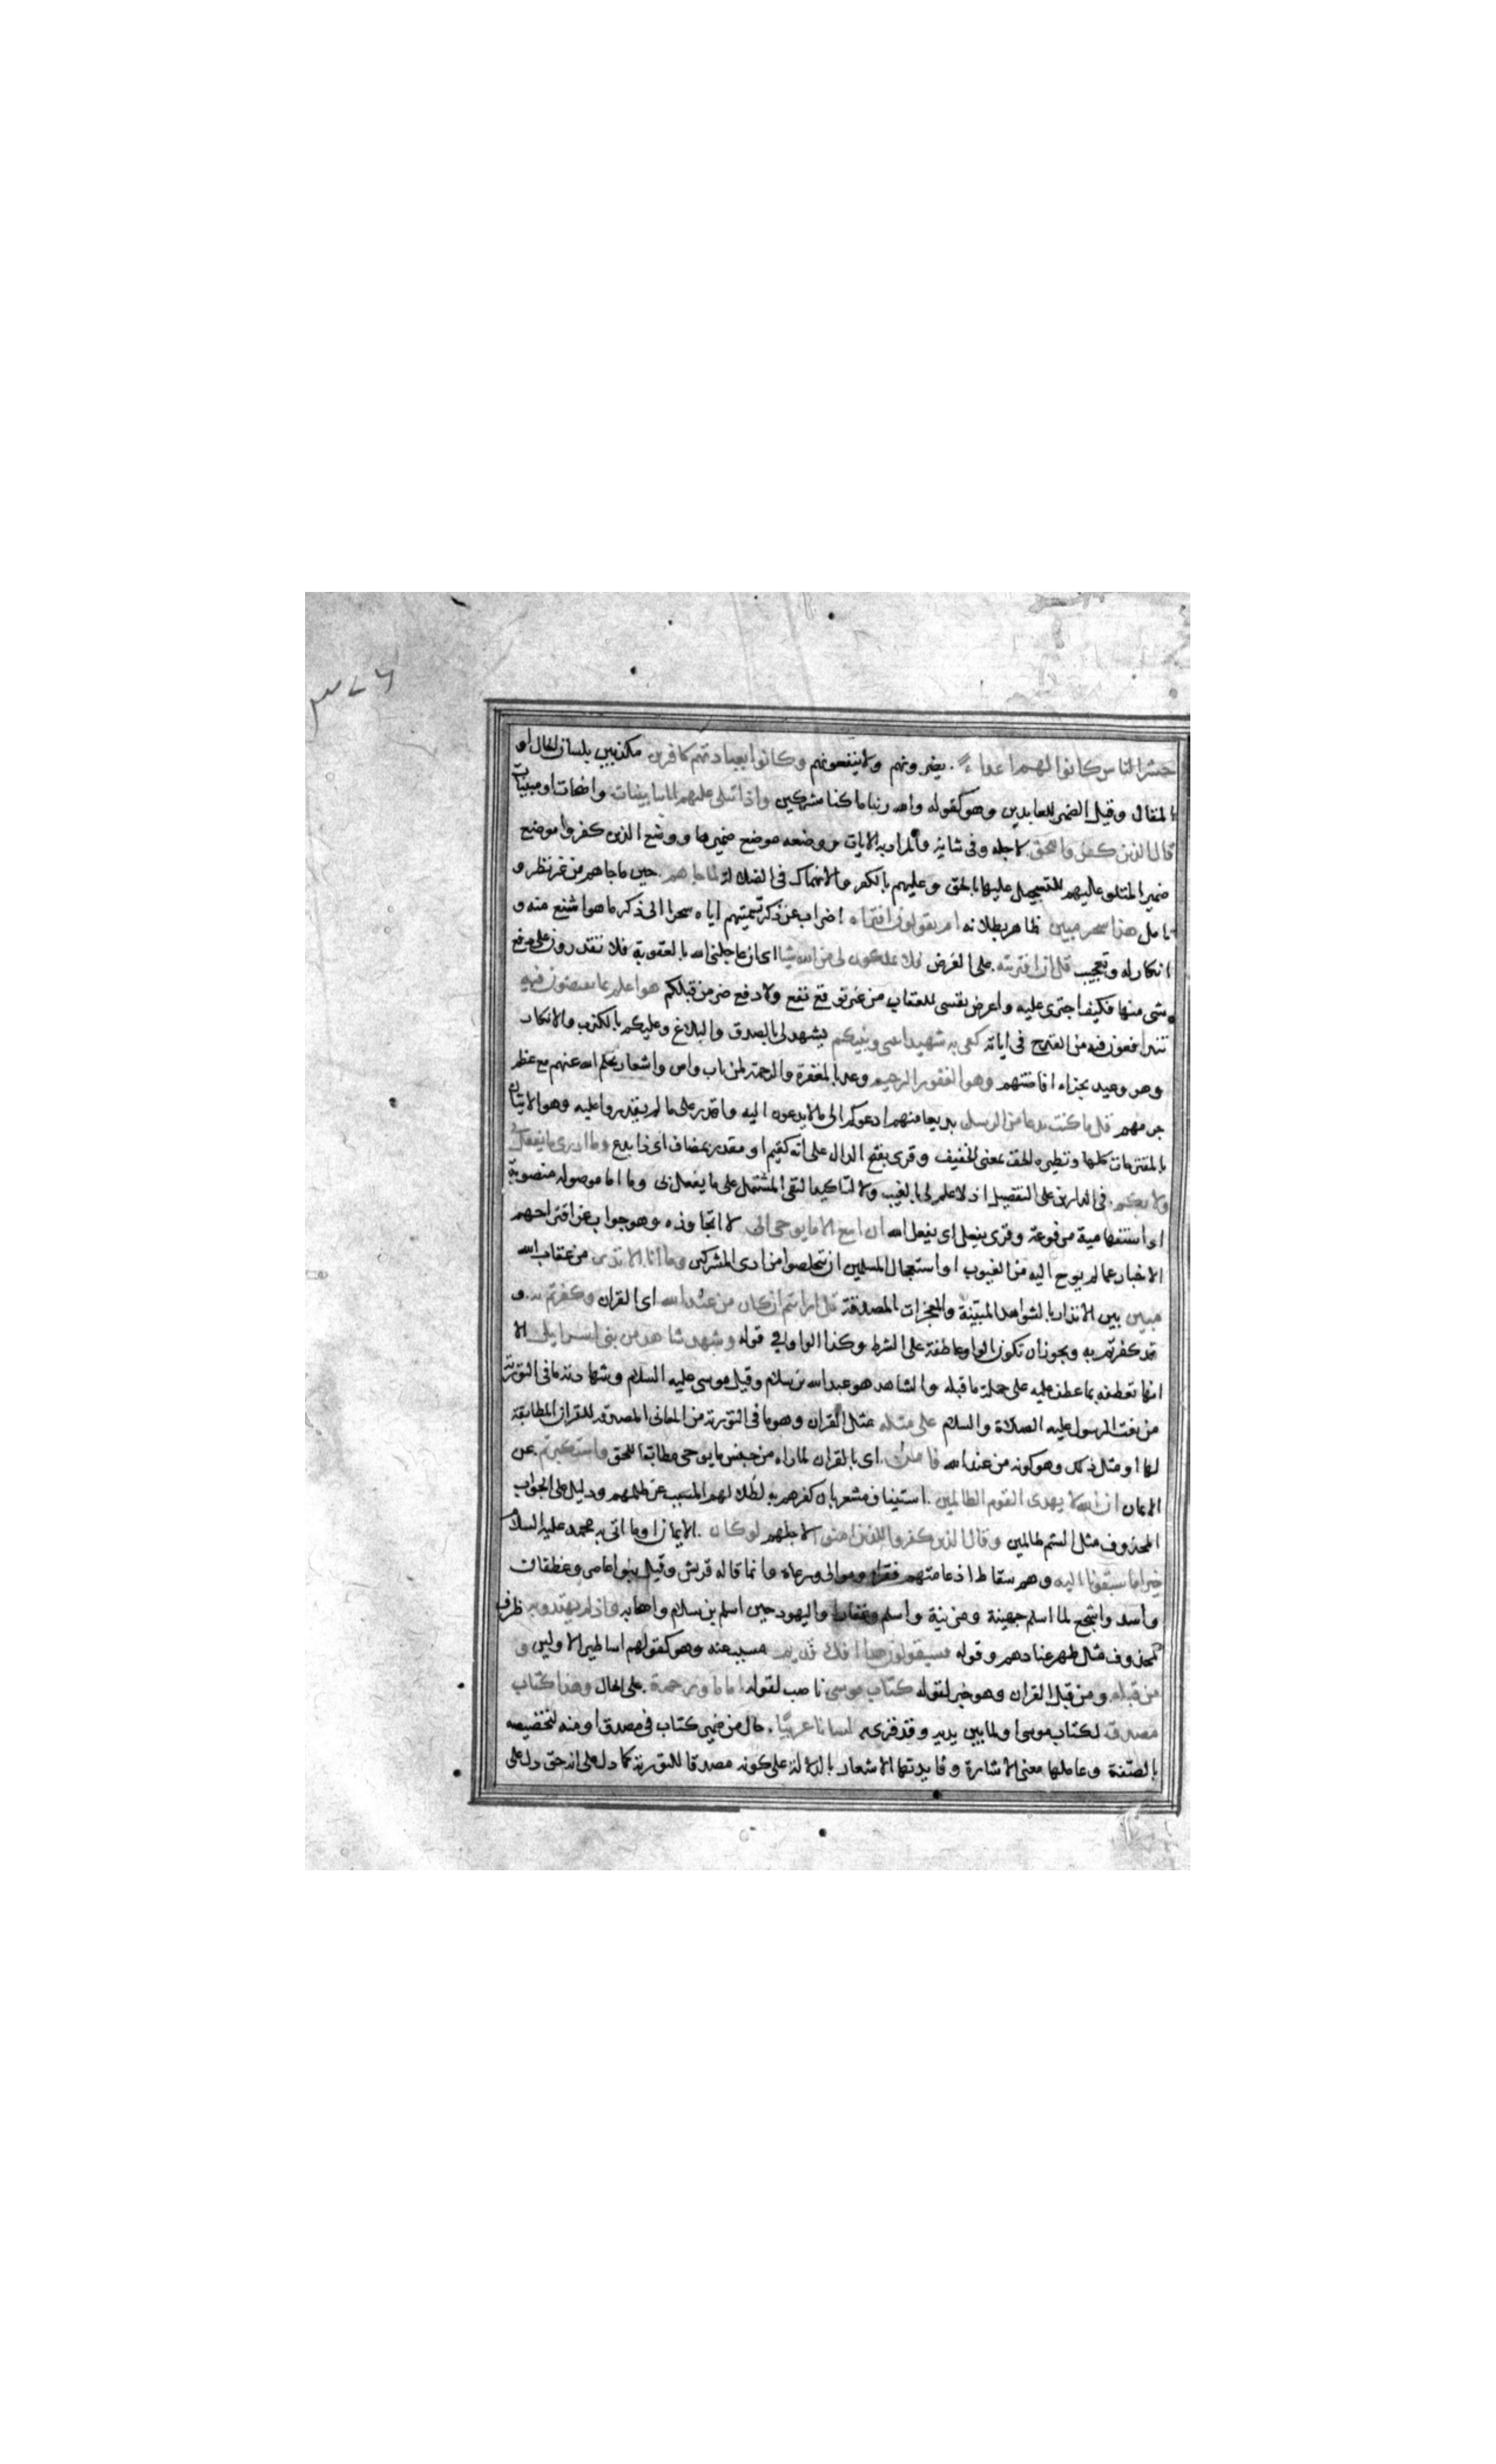 ٣٧٦
حشر الناس كانوا لهم اعداء يضرونهم ولا ينفعونهم وكانوا بعبادتهم كافرين مكذبين بلسان الحال او
المقال وقيل الضمير للعابدين وهو كقوله والله ربنا ما كنا مشركين واذا تتلى عليهم اياتنا بينات واضحات او مبينات
قال الذين كفروا للحق لاجله وفى شانه والمراد به الايات ووضعه موضع ضميرها ووضع الذين كفروا موضع
ضمير المتلو عليهم للتسجيل عليها بالحق وعليهم بالكفر والانهماك فى الضلالة لما جاهم حين ما جاهم من غير نظر و
تامل هذا سحر مبين ظاهر بطلانه ام يقولون افتراه اضراب عن ذكر تسميتهم اياه سحرا الى ذكر ما هو اشنع منه و
انكار له وتعجيب قل ان افتريته على الفرض فلا تملكون لى من الله شيا اى ان عاجلنى الله بالعقوبة فلا تقدرون على دفع
شى منها فكيف اجترى عليه واعرض نفسى للعقاب من غير توقع نفع ولا دفع ضر من قبلكم هو اعلم بما تفيضون فيه
تندافعون فيه من القدح فى اياته كفى به شهيدا بينى وبينكم يشهد لى بالصدق والبلاغ وعليكم بالكذب والانكار
وهو وعيد بجزاء افاضتهم وهو الغفور الرحيم وعد بالمغفرة والرحمة لمن تاب وامن واشعار بحلم الله عنهم مع عظم
جرمهم قل ما كنت بدعا من الرسل بديعا منهم ادعوكم الى ما لا يدعون اليه واقدر على ما لم يقدروا عليه وهو الاتيان
بالمقترحات كلها ونظيره الخف بمعنى الخفيف وقرى بفتح الدال على انه كقيم او مقدر بمضاف اى ذا بدع وما ادرى ما يفعل بى
ولا بكم فى الدارين على التفصيل اذ لا علم لى بالغيب ولا لتاكيد النفى المشتمل على ما يفعل بى وما اما موصولة منصوبة
او استفهامية مرفوعة وقرى يفعل اى يفعل الله ان اتبع الا ما يوحى الى لا اتجاوزه وهو جواب عن اقتراحهم
الاخبار عما لم يوح اليه من الغيوب او استعجال المسلمين ان يتخلصوا من اذى المشركين وما انا الا نذير من عقاب الله
مبين بين الانذار بالشواهد المبينة والمعجزات المصدقة قل ارايتم ان كان من عند الله اى القران وكفرتم به و
قد كفرتم به ويجوز ان تكون الواو عاطفة على الشرط وكذا الواو فى قوله وشهد شاهد من بنى اسرايل الا
انها تعطفه بما عطف عليه على جملة ما قبله والشاهد هو عبد الله بن سلام وقيل موسى عليه السلام وشهادته ما فى التورية
من نعت الرسول عليه الصلاة والسلام على مثله مثل القران وهو ما فى التورية من المعانى المصدقه للقران المطابقة
لها او مثل ذلك وهو كونه من عند الله فامن اى بالقران لما راه من جنس ما يوحى مطابقا للحق واستكبرتم عن
الايمان ان الله لا يهدى القوم الظالمين استيناف مشعر بان كفرهم به لضلالهم المسبب عن ظلمهم ودليل على الجواب
المحذوف مثل الستم ظالمين وقال الذين كفروا للذين امنوا لاجلهم لو كان الايمان او ما اتى به محمد عليه السلام
خيرا ما سبقونا اليه وهم سقاط اذ عامتهم فقراء وموالى ورعاة وانما قاله قريش وقيل بنوا عامر وغطفان
واسد واشجع لما اسلم جهينة ومزينة واسلم وغفار او اليهود حين اسلم بن سلام واصحابه واذ لم يهتدوا به ظرف
لمحذوف مثل ظهر عنادهم وقوله فسيقولون هذا افك قديم مسبب عنه وهو كقولهم اساطير الاولين و
من قبله ومن قبل القران وهو خبر لقوله كتاب موسى ناصب لقوله اماما ورحمة على الحال وهذا كتاب
مصدق لكتاب موسى او لما بين يديه وقد قرى به لسانا عربيا حال من ضمير كتاب فى مصدق او منه لتخصيصه
بالصفة وعاملها معنى الاشارة وفايدتها الاشعار بالدلالة على كونه مصدقا للتورية كما دل على انه حق دل على